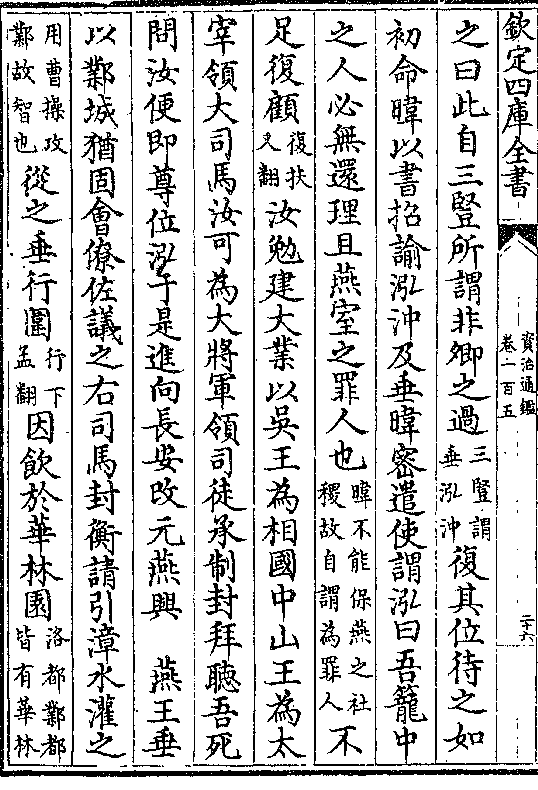 欽定四庫全書
資治通鑑
卷一百五
二十六
之曰此自三豎所謂非卿之過三豎謂垂泓沖復其位待之如
初命暐以書招諭泓沖及垂暐密遣使謂泓曰吾籠中
之人必無還理且燕室之罪人也暐不能保燕之社稷故自謂為罪人不
足復顧復扶又翻汝勉建大業以吳王為相國中山王為太
宰領大司馬汝可為大將軍領司徒承制封拜聽吾死
問汝便即尊位泓于是進向長安改元燕興　燕王垂
以鄴城猶固會僚佐議之右司馬封衡請引漳水灌之
用曹操攻鄴故智也從之垂行圍行下孟翻因飲於華林園洛都鄴都皆有華林